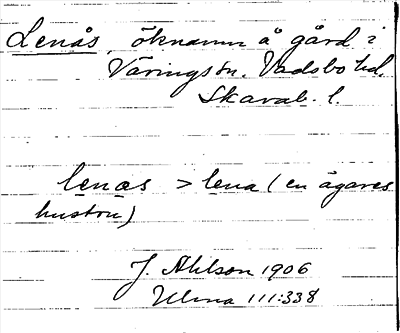 Lenås, öknamn å gård i
Värings sn. Vadsbo hd.
Skarab. l.
lenas > lena (en ägares
hustru)
J. Ahlson 1906
Ulma 111:338